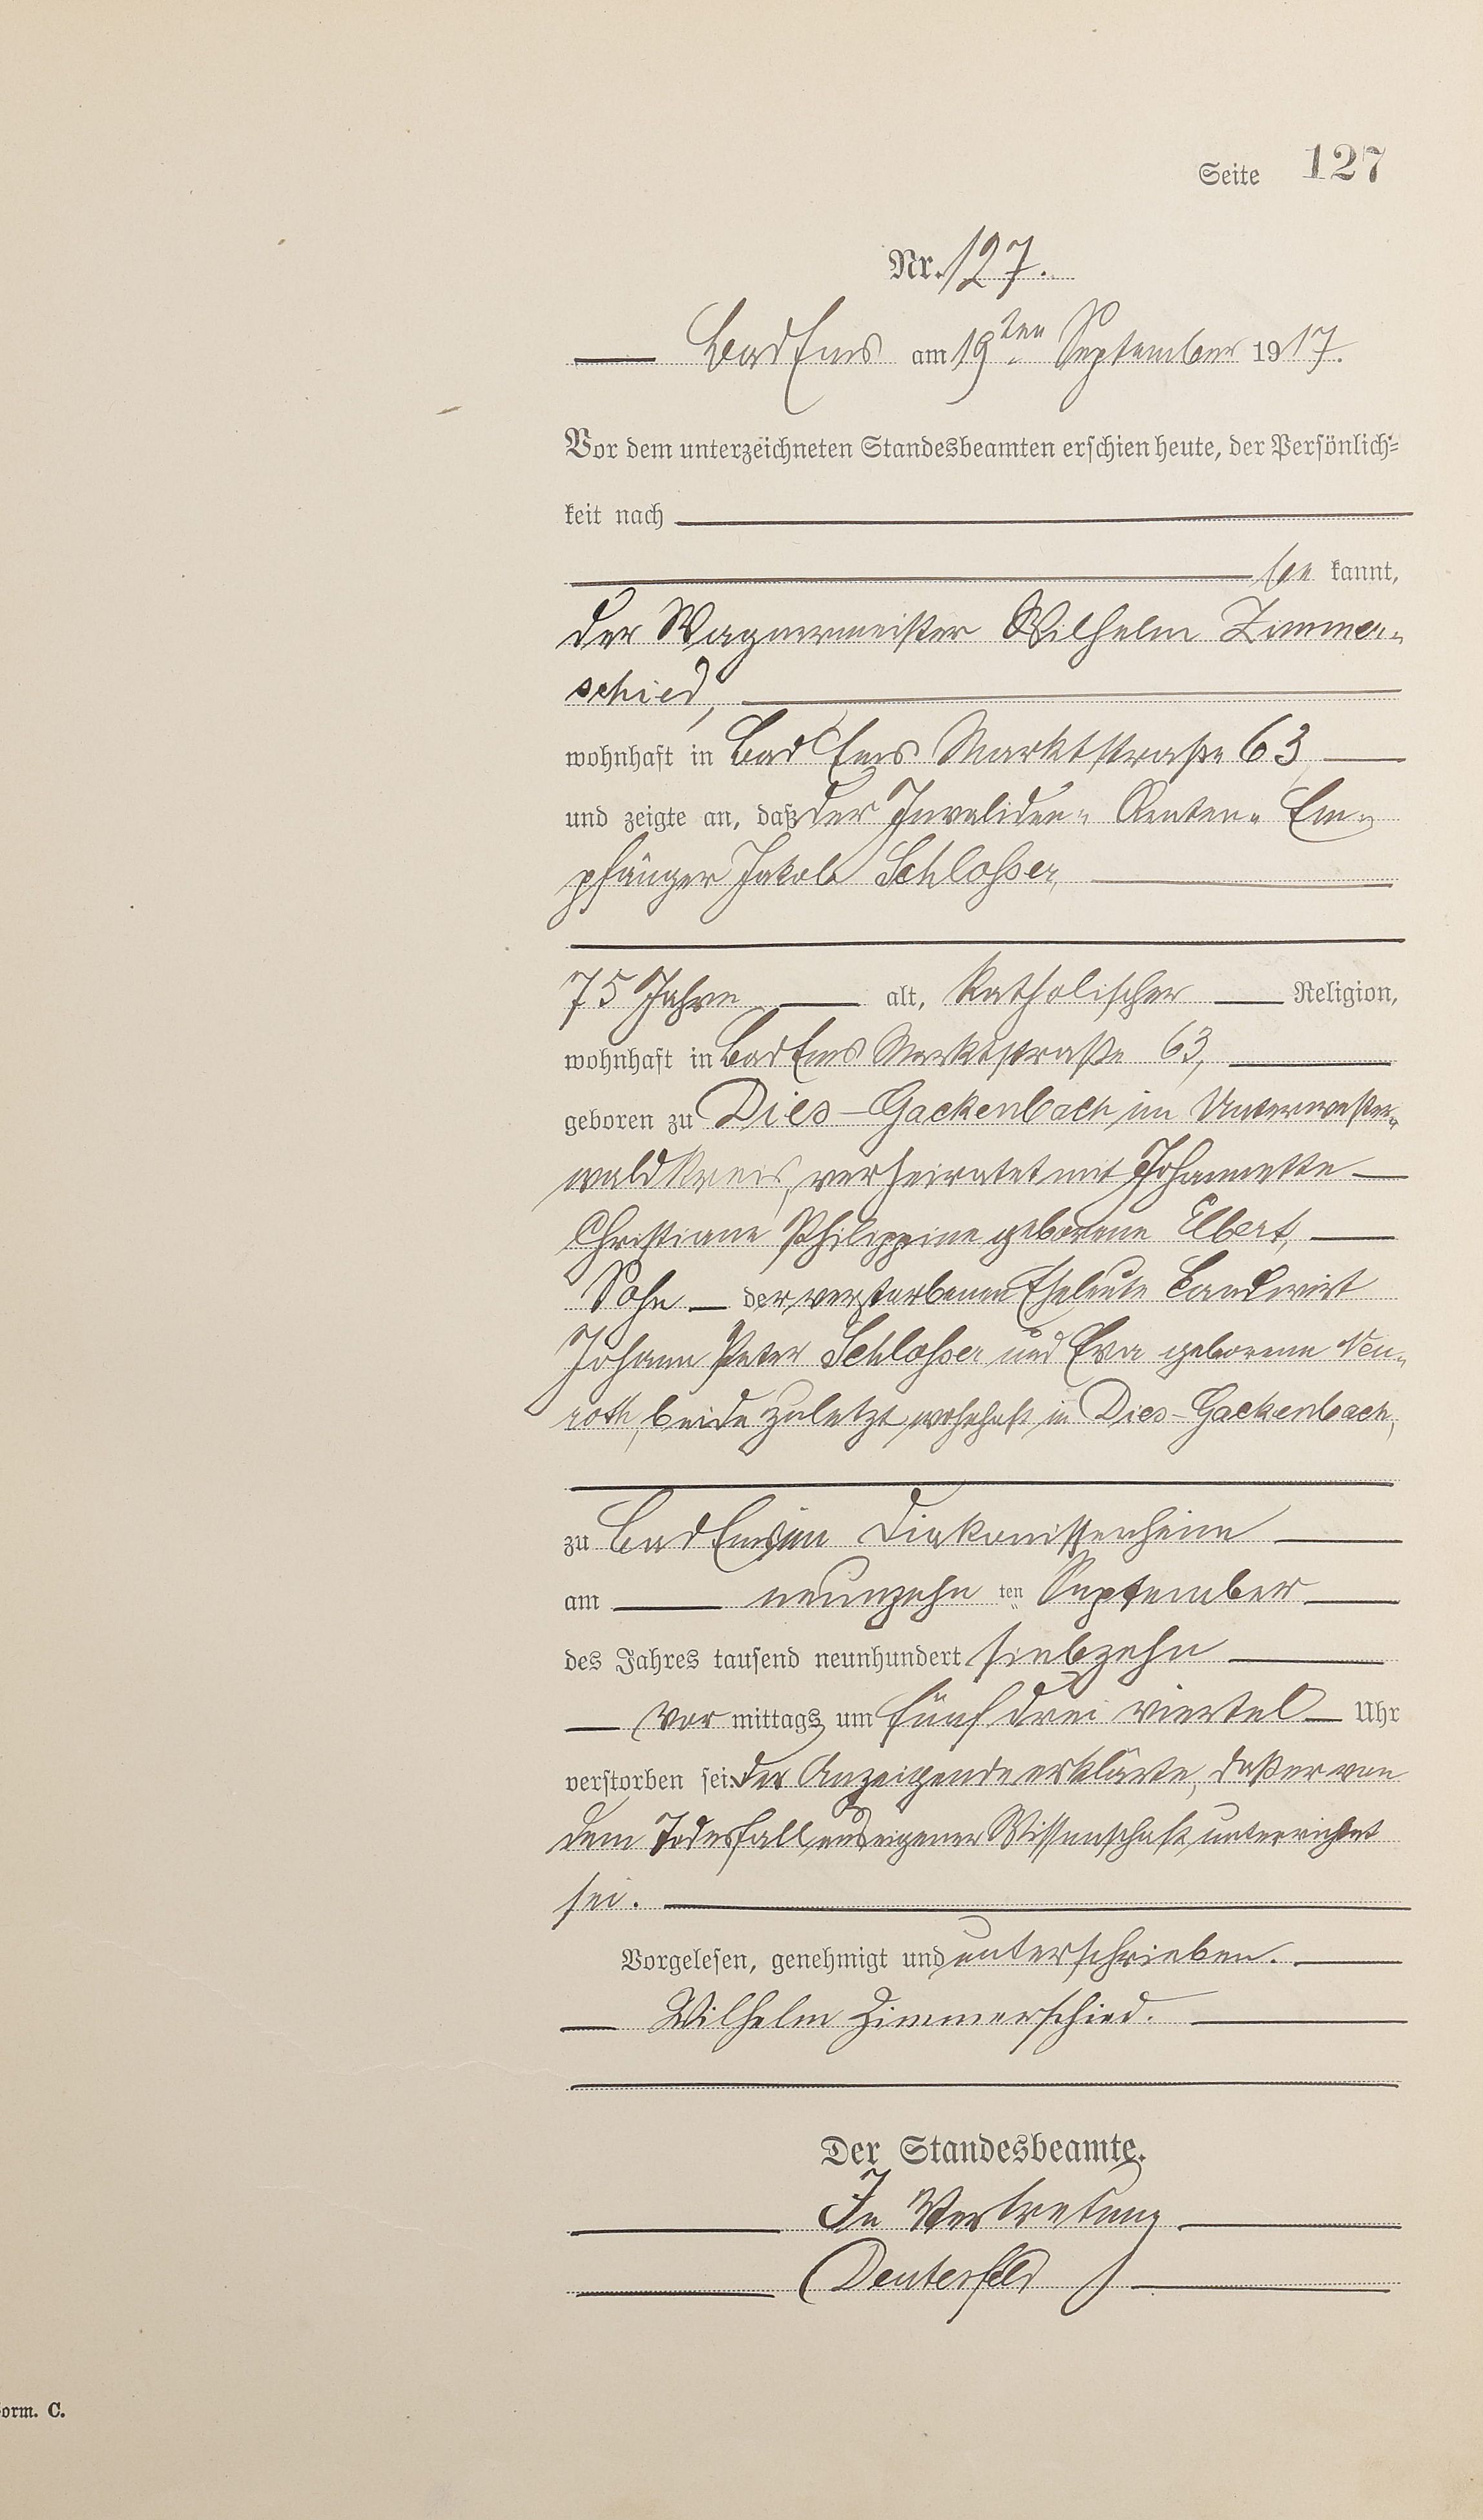 Seite 127
Nr. 127.
Bad Ems am 19ten September 1917.
Vor dem unterzeichneten Standesbeamten erschien heute, der Persönlich-
keit nach
be kannt,
der Wagnermeister Wilhelm Zimmer-
schied,
wohnhaft in Bad Ems Marktstraße 63
und zeigte an, daß der Invaliden- Renten- Em-
pfänger Jakob Schlosser,
75 Jahre alt, katholischer Religion,
wohnhaft in Bad Ems Marktstraße 63,
geboren zu Dies-Gackenbach im Unterwester-
waldkreis, verheiratet mit Johannette
Christiane Philippine geborene Elbert,
Sohn der verstorbenen Eheleute Landwirt
Johann Peter Schlosser und Eva geborene Neu-
roth, beide zuletzt wohnhaft in Dies-Gackenbach,
zu Bad Ems im Diakonissenheim
am neunzehn ten September
des Jahres tausend neunhundert siebzehn
vor mittags um fünf drei viertel Uhr
verstorben sei. Der Anzeigende erklärte, daß er von
dem Todesfall aus eigener Wissenschaft unterrichtet
sei.
Vorgelesen, genehmigt und unterschrieben.
Wilhelm Zimmerschied.
Der Standesbeamte.
In Vertretung
orm. C.